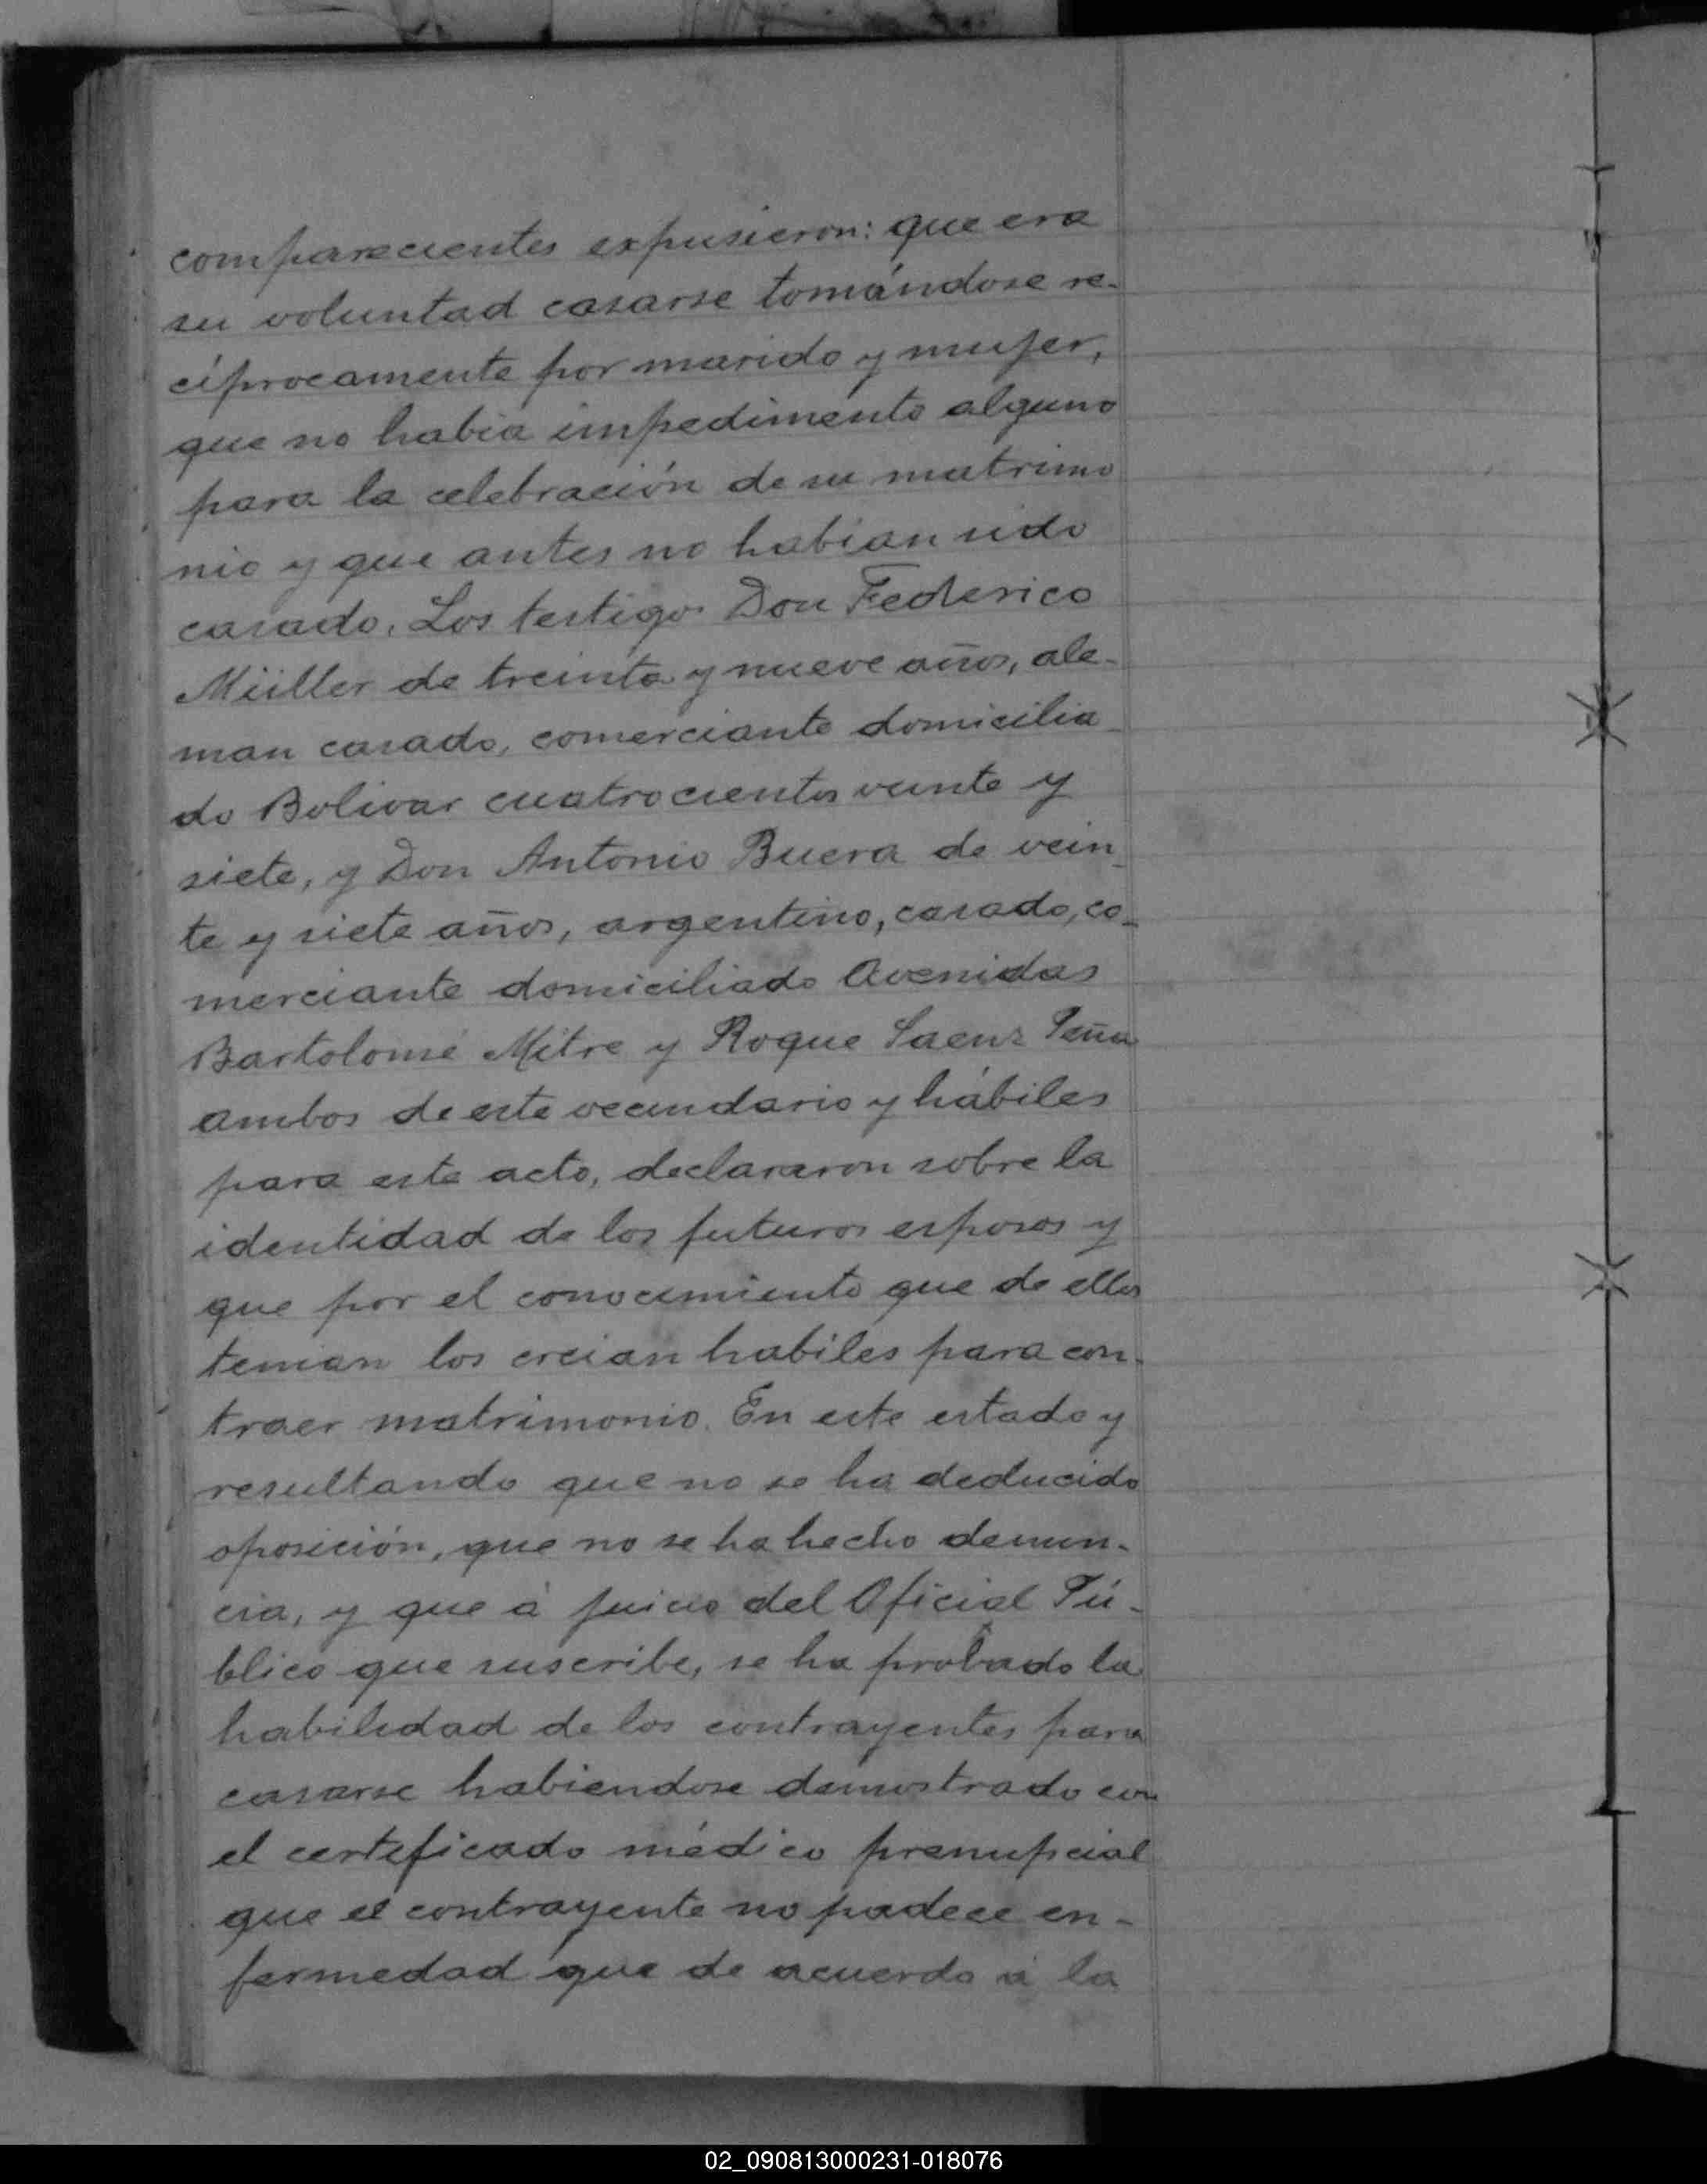 comparecientes expusieron: que era
su voluntad casarse tomándose re-
cíprocamente por marido y mujer,
que no habia impedimento alguno
para la celebración de su matrimo
nio y que antes no habian sido
casado. Los testigos Don Federico
Müller de treinta y nueve años, ale-
man casado, comerciante domicilia
do Bolivar cuatrocientos veinte y
siete, y Don Antonio Buera de vein_
te y siete años, argentino, casado, co_
merciante domiciliado Avenidas
Bartolomé Mitre y Roque Saenz Peña
ambos de este vecindario y hábiles
para este acto, declararon sobre la
identidad de los futuros esposos y
que por el conocimiento que de ellos
tenian los creian habiles para con-
traer matrimonio. En este estado y
resultando que no se ha deducido
oposición, que no se ha hecho denun-
cia, y que á juicio del Oficial Pú-
blico que suscribe, se ha probado la
habilidad de los contrayentes para
casarse habiendose demostrado con
el certificado médico prenupcial
que el contrayente no padece en-
fermedad que de acuerdo á la
02_090813000231-018076